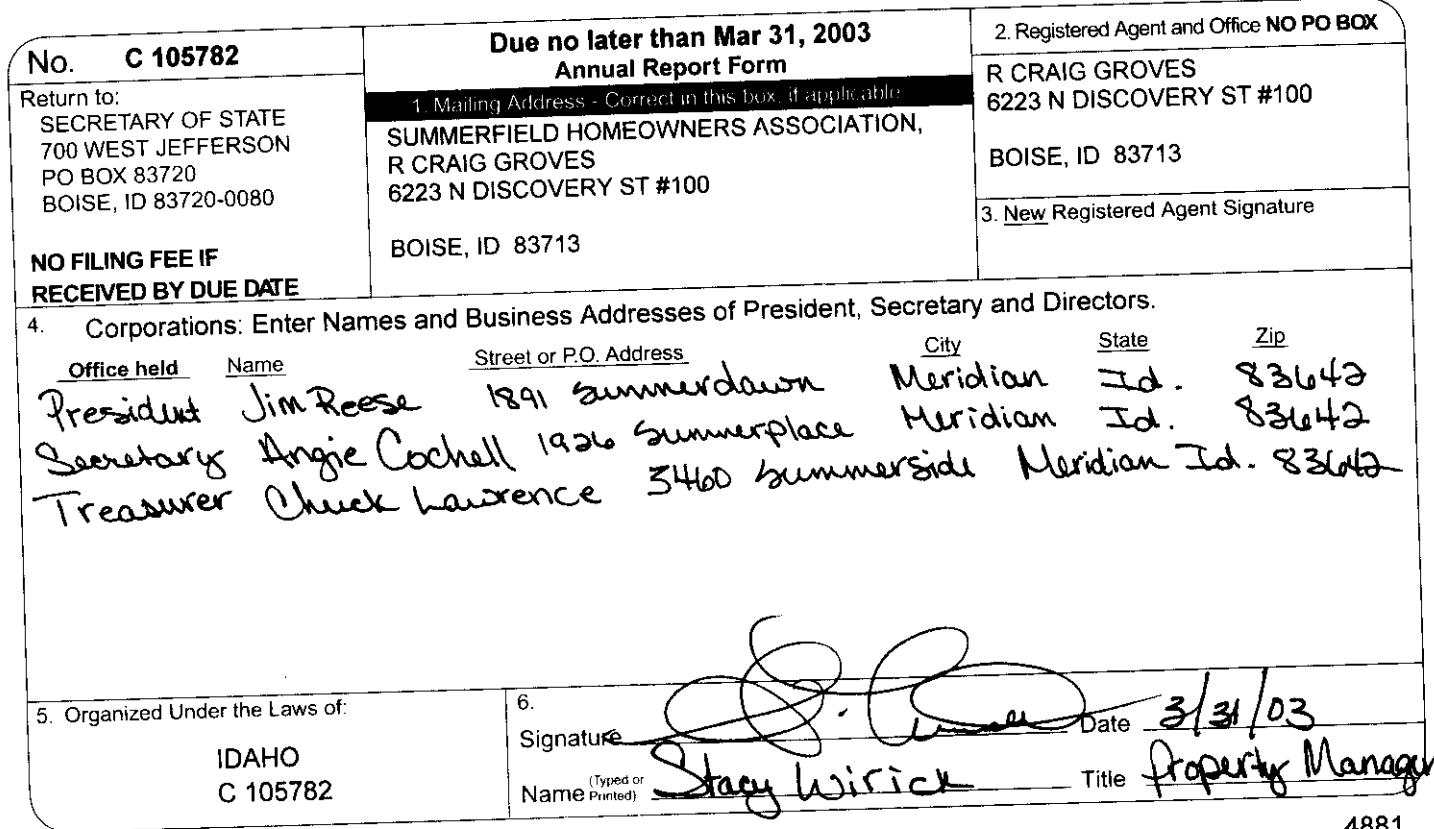 No. C 105782
Return to:
SECRETARY OF STATE
700 WEST JEFFERSON
PO BOX 83720
BOISE, ID 83720-0080
NO FILING FEE IF
RECEIVED BY DUE DATE
Due no later than Mar 31, 2003
Annual Report Form
1. Mailing Address - Correct in this box, if applicable
SUMMERFIELD HOMEOWNERS ASSOCIATION,
R CRAIG GROVES
6223 N DISCOVERY ST #100
BOISE, ID 83713
2. Registered Agent and Office NO PO BOX
R CRAIG GROVES
6223 N DISCOVERY ST #100
BOISE, ID 83713
3. New Registered Agent Signature
4. Corporations: Enter Names and Business Addresses of President, Secretary and Directors.
Office held Name Street or P.O. Address City State Zip
President Jim Reese 1891 Summerdawn Meridian Id. 83642
Secretary Angie Cochell 1926 Summerplace Meridian Id. 83642
Treasurer Chuck Lawrence 3460 Summerside Meridian Id. 83642
5. Organized Under the Laws of:
IDAHO
C 105782
6.
Signature Date 3/31/03
Name (Typed or Printed) Stacy Wirick Title Property Manager
4881